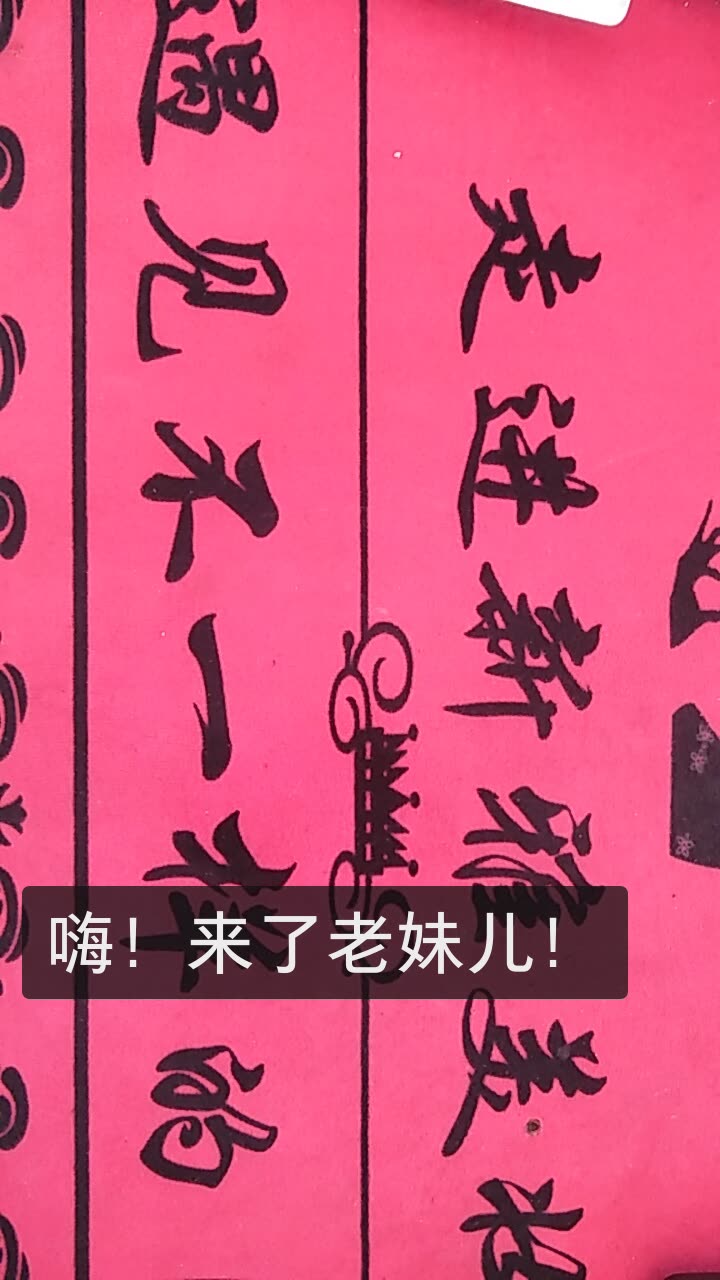 走进新雅美妆
遇见不一样的
嗨！来了老妹儿！